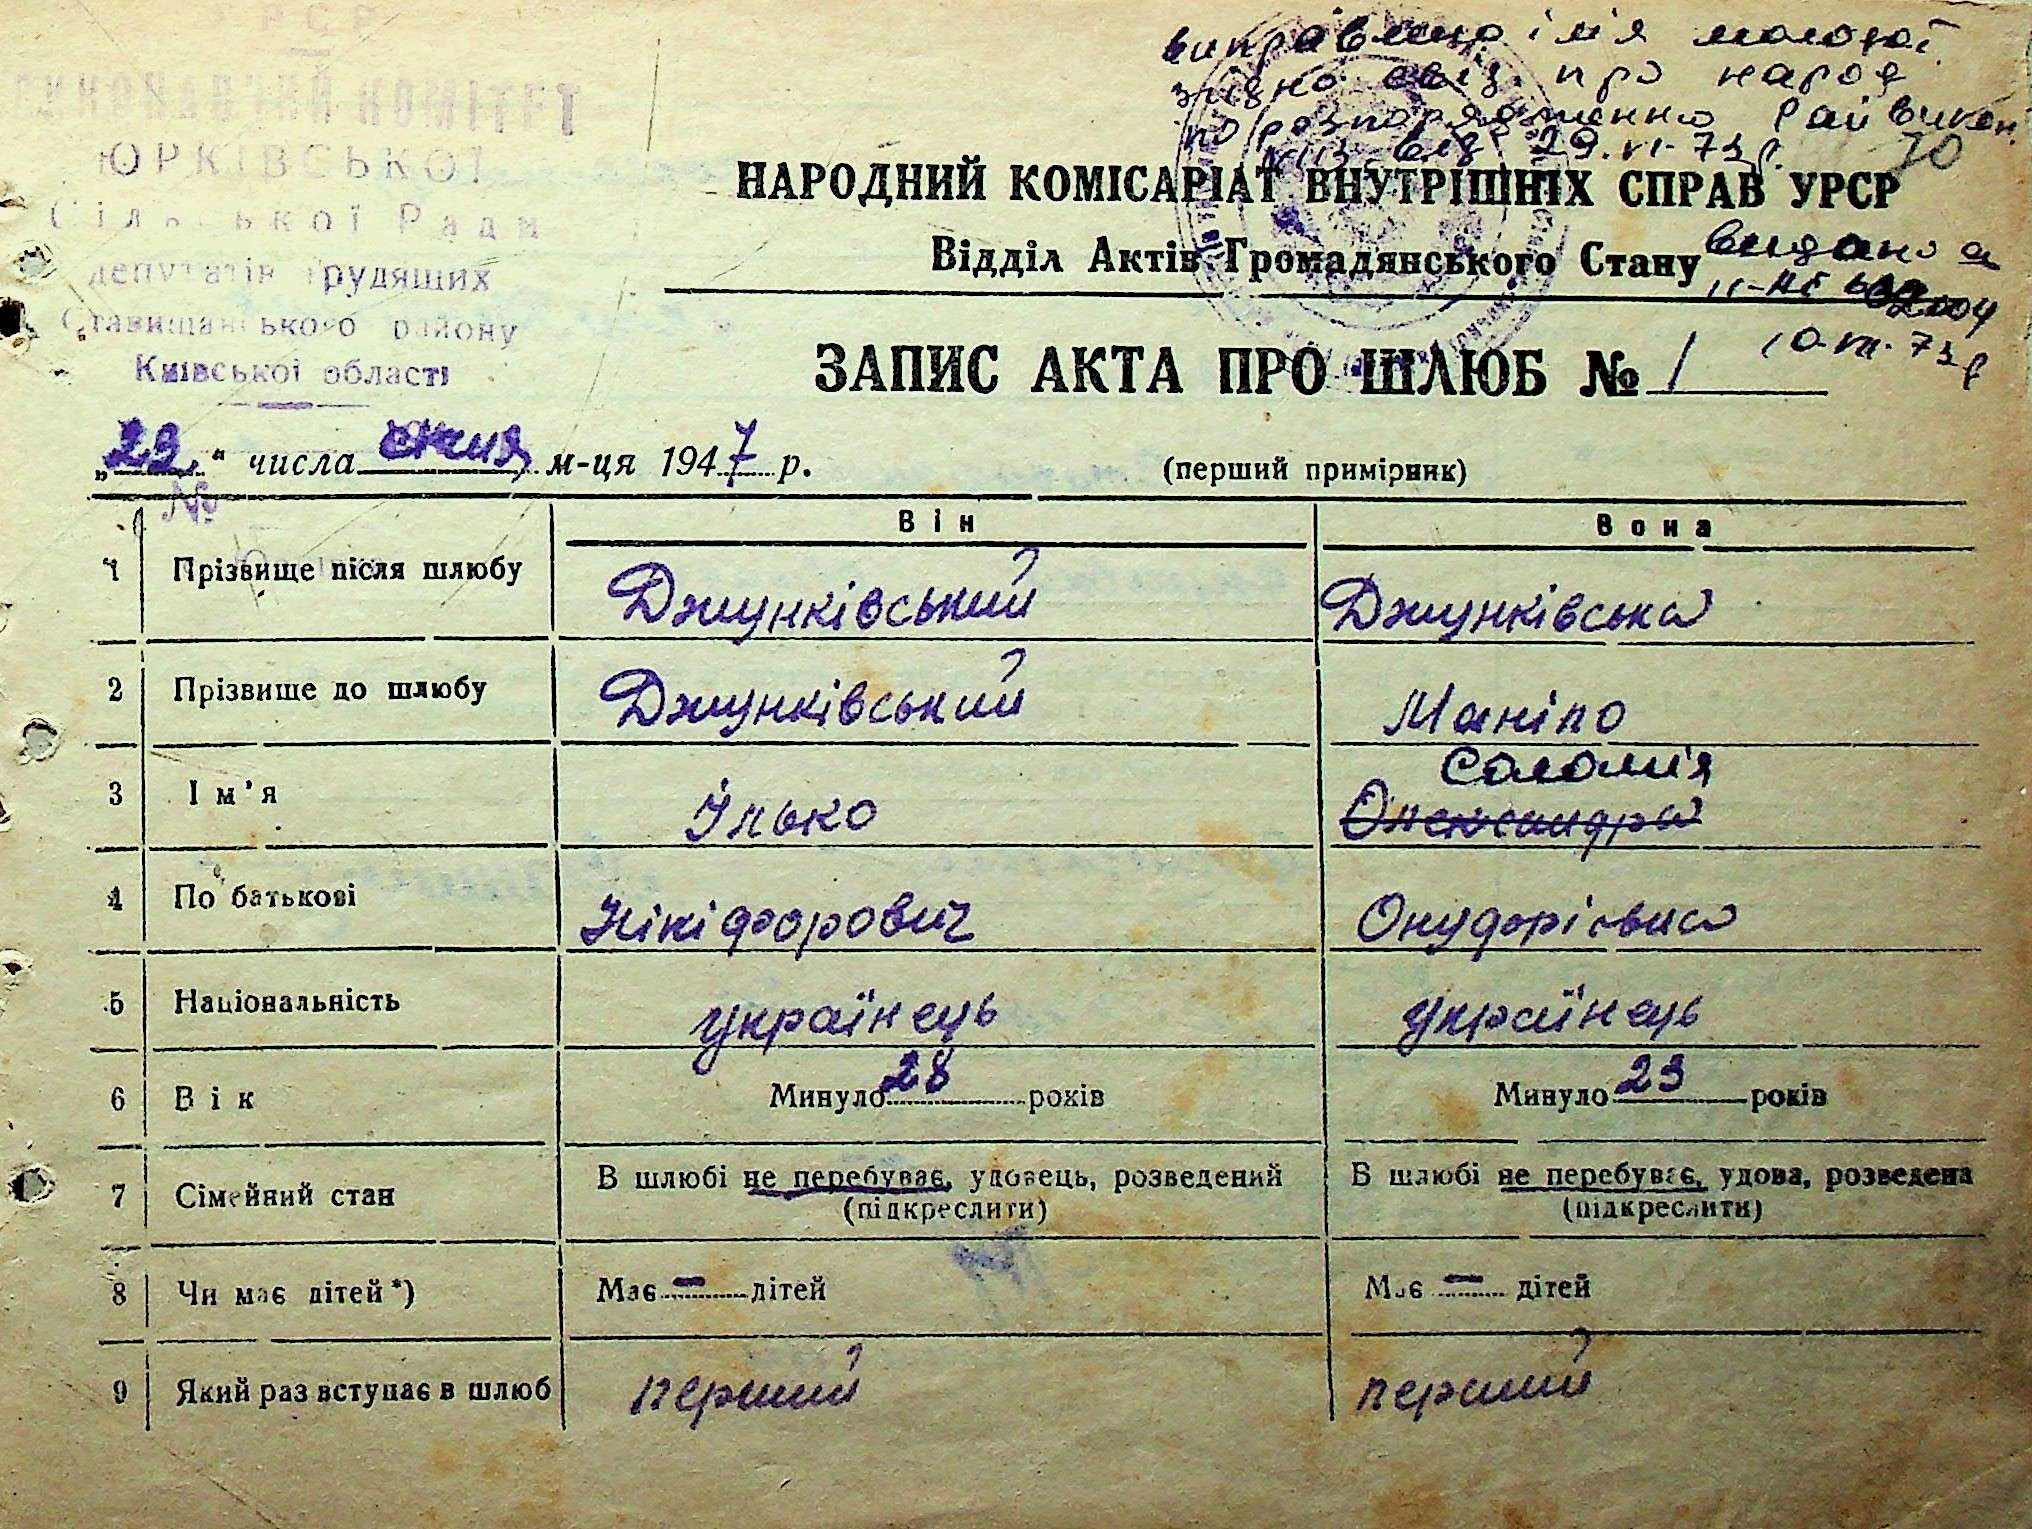 УРСР
ВИКОНАВЧИЙ КОМІТЕТ
ЮРКІВСЬКОЇ
Сільської Ради
депутатів трудящих
Ставищанського району
Київської області
№
виправлено ім'я молодої
згідно свід. про народ
по розпорядженню Райвикон.
від 29.VI-73р.
70
НАРОДНИЙ КОМІСАРІАТ ВНУТРІШНІХ СПРАВ УРСР
Відділ Актів Громадянського Стану
видано
10.VII.73р
ЗАПИС АКТА ПРО ШЛЮБ № 1
„29.“ числа січня м-ця 1947 р.
(перший примірник)
Він Вона
1 Прізвище після шлюбу Джунківський Джунківська
2 Прізвище до шлюбу Джунківський Маніло
Соломія
3 Ім’я Ілько Олександра
4 По батькові Нікіфорович Онуфріівна
5 Національність українець українець
6 Вік Минуло 28 років Минуло 23 років
7 Сімейний стан В шлюбі не перебуває, удовець, розведений В шлюбі не перебуває, удова, розведена
(підкреслити) (підкреслити)
8 Чи має дітей *) Має — дітей Має — дітей
9 Який раз вступає в шлюб перший перший